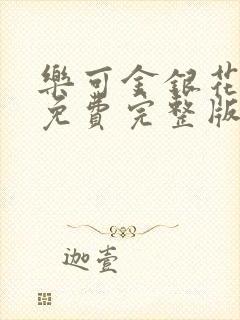 樂可金銀花
免費完整版
迦壹